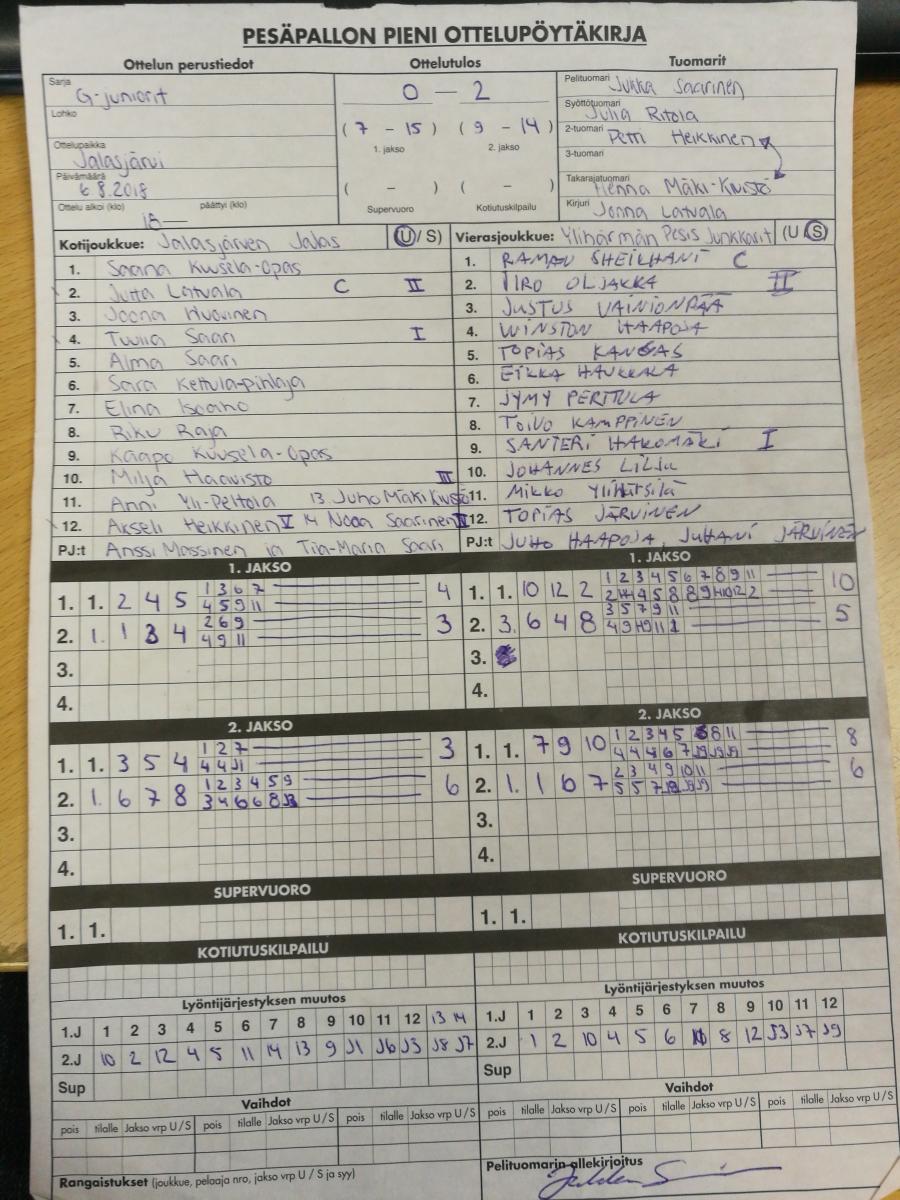 PESÄPALLON PIENI OTTELUPÖYTÄKIRJA
Ottelun perustiedot
Ottelutulos
Tuomarit
Sarja
G-juniorit
Lohko
Ottelupaikka
Jalasjärvi
Päivämäärä
6 8.2018
Ottelu alkoi (klo) päättyi (klo)
18—
0 — 2
( 7 - 15 ) ( 9 - 14 )
1. jakso 2. jakso
( - ) ( - )
Supervuoro Kotiutuskilpailu
Pelituomari Jukka Saarinen
Syöttötuomari Julia Ritola
2-tuomari Petti Heikkinen
3-tuomari
Takarajatuomari Henna Mäki-Kivistö
Kirjuri Jonna Latvala
Kotijoukkue: Jalasjärven Jalas (U/ S)
1. Saana Kuusela-Opas
2. Jutta Latvala C II
3. Joona Huovinen
4. Tuulia Saari I
5. Alma Saari
6. Sara Kettula-pihlaja
7. Elina Isoaho
8. Riku Raja
9. Kaapo Kuusela-Opas
10. Milja Haavisto III
11. Anni Yli-Peltola 13 Juho Mäki Kivistö
12. Akseli Heikkinen V 14 Nooa Saarinen
PJ:t Anssi Massinen ja Tiia-Maria Saari
Vierasjoukkue: Ylihärmän Pesis Junkkarit (U (S)
1. RAMAN SHEIKHANI C
2. IIRO OLJAKKA II
3. JUSTUS VAINIONPÄÄ
4. WINSTON HAAPOJA
5. TOPIAS KANGAS
6. EIKKA HAUKKALA
7. JYMY PERTTULA
8. TOIVO KAMPPINEN
9. SANTERI HAKOMÄKI I
10. JOHANNES LILJA
11. MIKKO YLIHÄRSILÄ
12. TOPIAS JÄRVINEN
PJ:t JUHO HAAPOJA, JUHANI JÄRVINEN
1. JAKSO
1. 1. 2 4 5 1 3 6 7 4
4 5 9 11
2. 1. 1 3 4 2 6 9 3
4 9 11
3.
4.
1. JAKSO
1. 1. 10 12 2 1 2 3 4 5 6 7 8 9 11 10
2. 3. 6 4 8 3 5 7 9 11 5
3.
4.
2. JAKSO
1. 1. 3 5 4 1 2 7 3
4 4 J1
2. 1. 6 7 8 1 2 3 4 5 9 6
3 4 6 6 8
3.
4.
2. JAKSO
1. 1. 7 9 10 1 2 3 4 5 8 11 8
4 4 4 6 7
2. 1. 1 6 7 2 3 4 9 10 11 6
5 5 7
3.
4.
SUPERVUORO
1. 1.
SUPERVUORO
1. 1.
KOTIUTUSKILPAILU
KOTIUTUSKILPAILU
Lyöntijärjestyksen muutos
1.J 1 2 3 4 5 6 7 8 9 10 11 12 13 14
2.J 10 2 12 4 5 11 14 13 9 J1 J6 J3 J8 J7
Sup
Lyöntijärjestyksen muutos
1.J 1 2 3 4 5 6 7 8 9 10 11 12
2.J 1 2 10 4 5 6 8 12 J3 J7 J9
Sup
Vaihdot
pois tilalle Jakso vrp U / S pois tilalle Jakso vrp U / S pois tilalle Jakso vrp U / S
Vaihdot
pois tilalle Jakso vrp U / S pois tilalle Jakso vrp U / S pois tilalle Jakso vrp U / S
Rangaistukset (joukkue, pelaaja nro, jakso vrp U / S ja syy)
Pelituomarin allekirjoitus